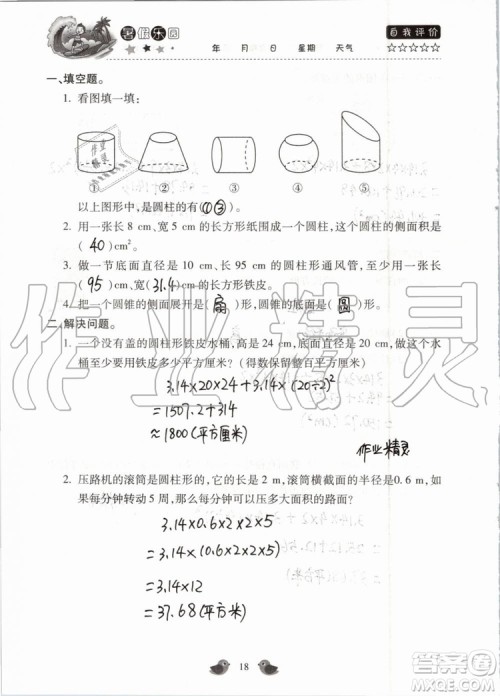 暑假乐园
年 月 日 星期 天气
自我评价
☆☆☆☆☆
一、填空题。
1. 看图填一填:
① ② ③ ④ ⑤
以上图形中,是圆柱的有(①③)。
2. 用一张长 8 cm、宽 5 cm 的长方形纸围成一个圆柱,这个圆柱的侧面积是
( 40 )cm²。
3. 做一节底面直径是 10 cm、长 95 cm 的圆柱形通风管,至少需要用长
( 95 )cm、宽(31.4)cm 的长方形铁皮。
4. 把一个圆锥的侧面展开是( 扇 )形,圆锥的底面是( 圆 )形。
二、解决问题。
1. 一个没有盖的圆柱形铁皮水桶,高是 24 cm,底面直径是 20 cm,做这个水
桶至少要用铁皮多少平方厘米?(得数保留整百平方厘米)
3.14×20×24+3.14×(20÷2)²
=1507.2+314
≈1800(平方厘米)
作业精灵
2. 压路机的滚筒是圆柱形的,它的长是 2 m,滚筒横截面的半径是0.6 m,如
果每分钟转动 5 周,那么每分钟可以压多大面积的路面?
3.14×0.6×2×2×5
=3.14×(0.6×2×2×5)
=3.14×12
=37.68(平方米)
18
作业精灵
答案圈
MXQE.COM